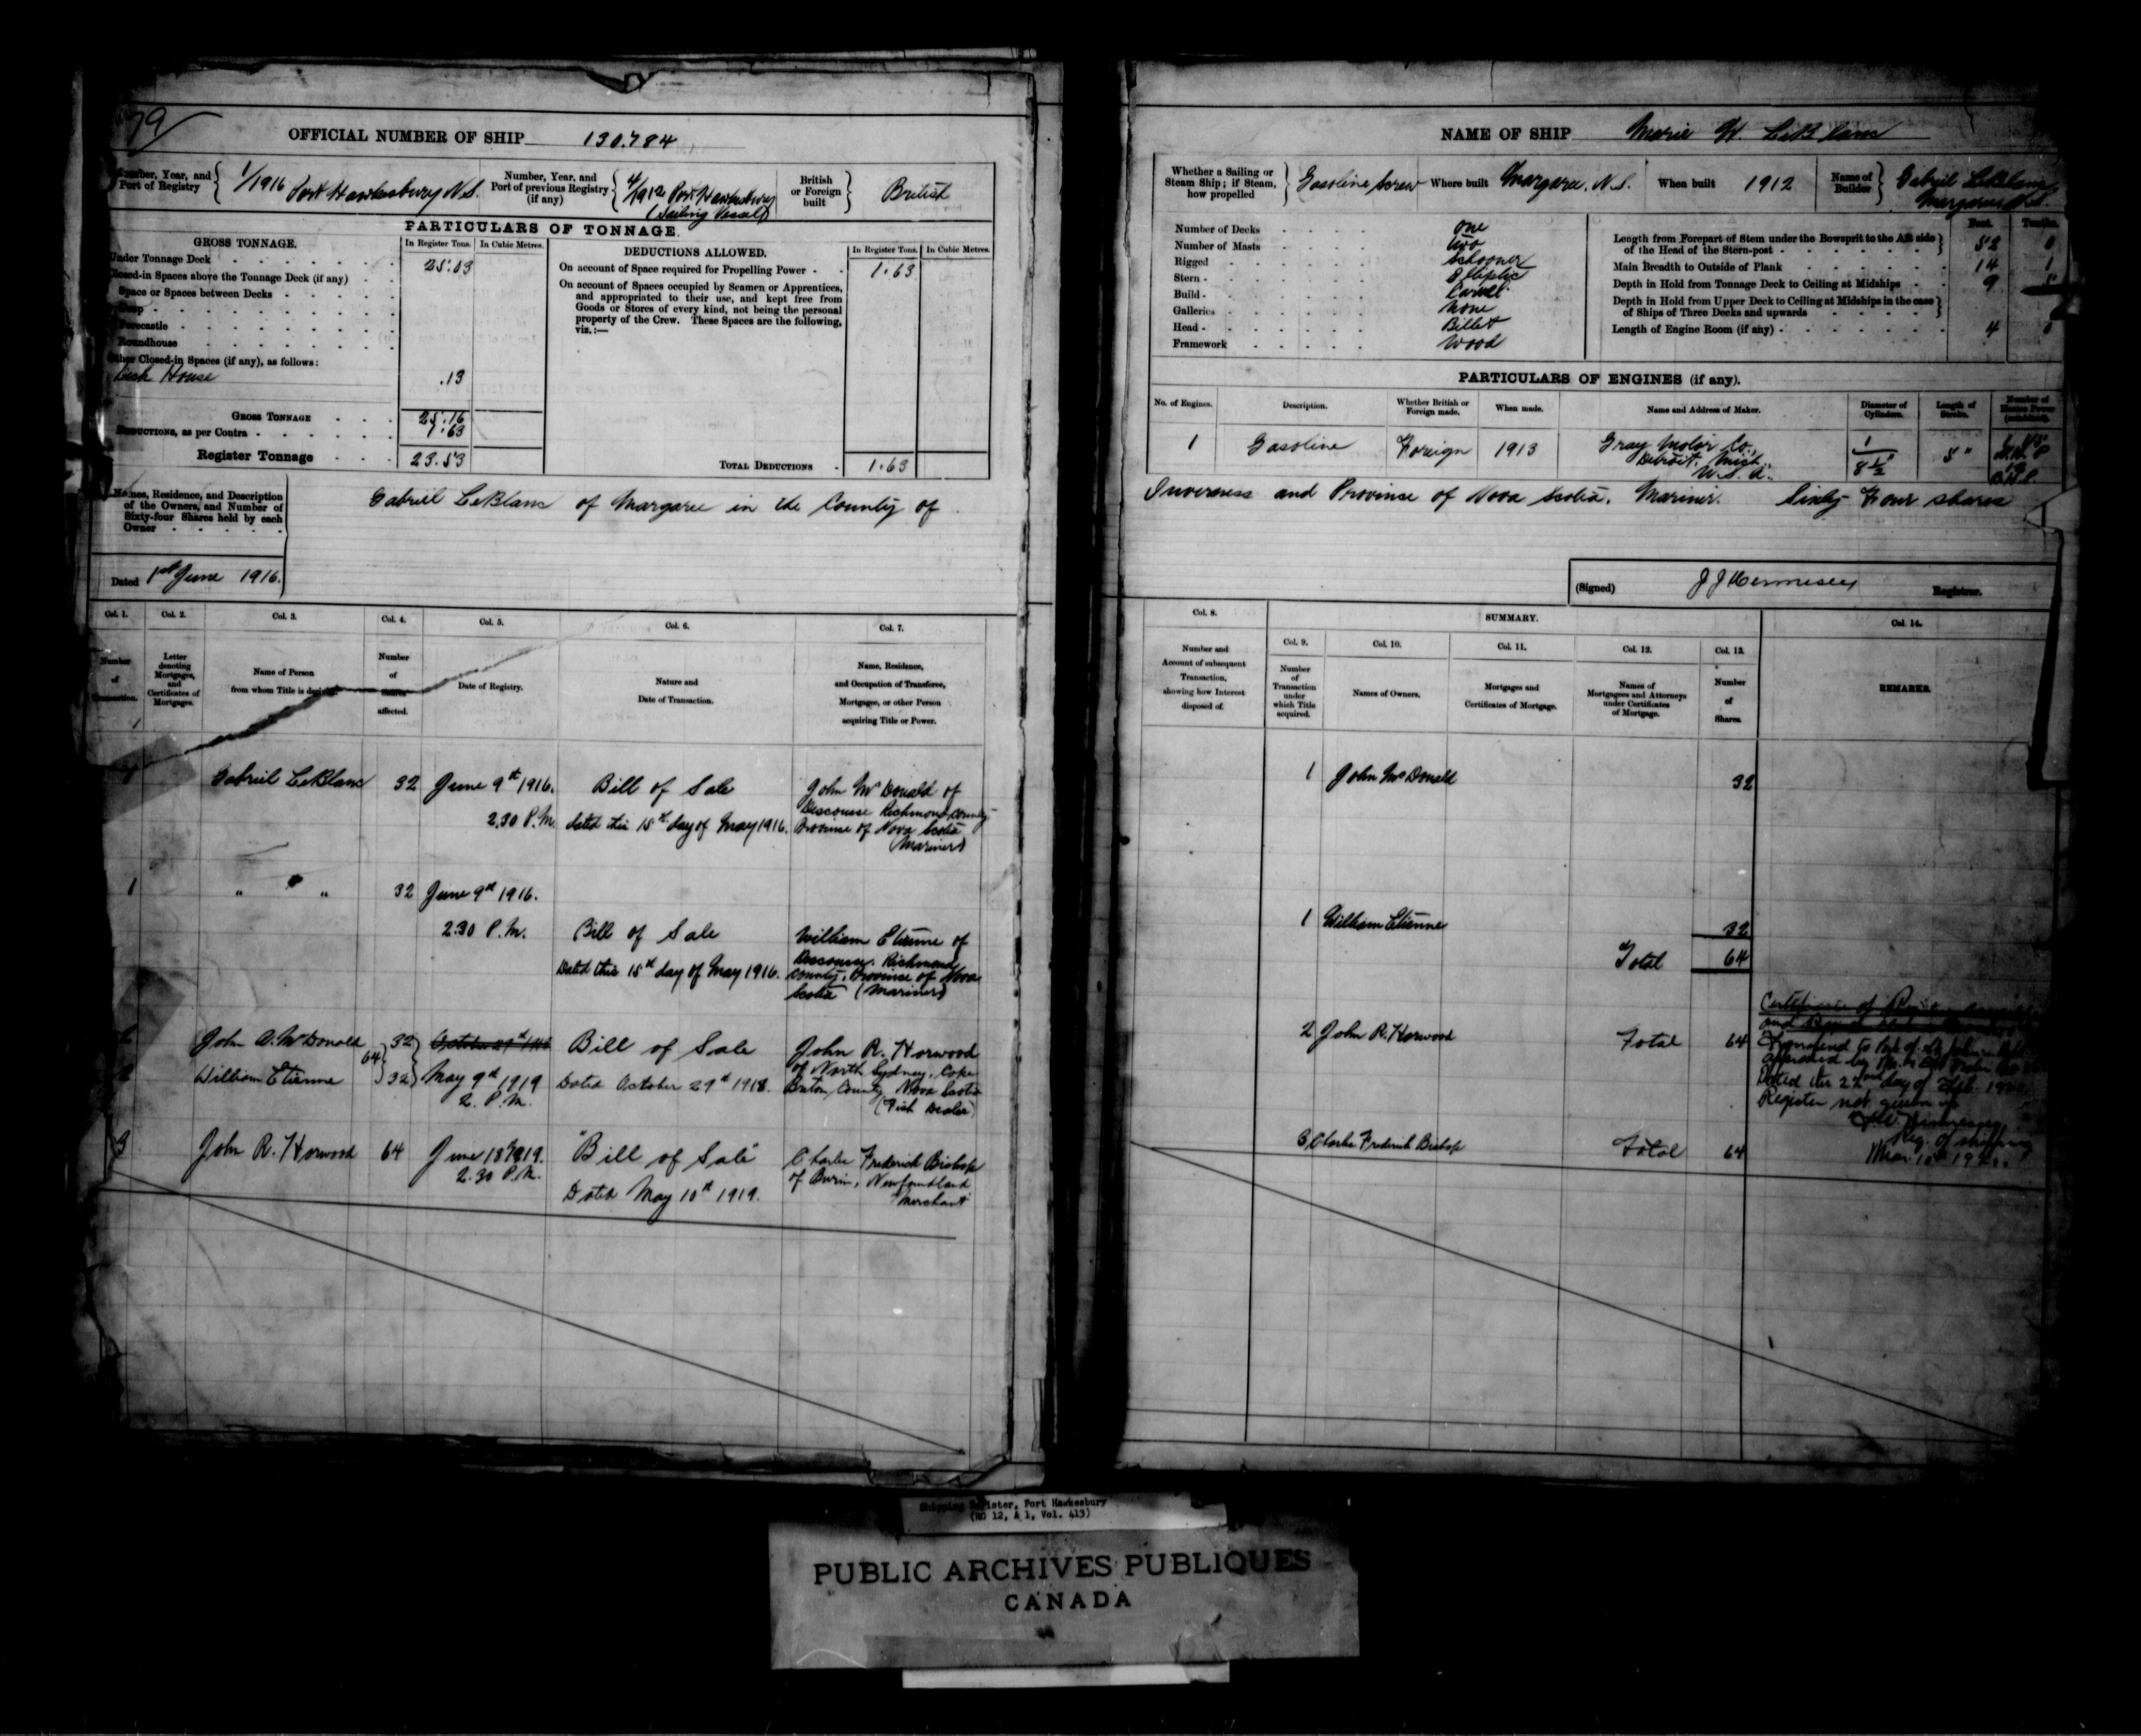 79
OFFICIAL NUMBER OF SHIP 130.784
Number, Year, and Port of Registry 1/1916 Port Hawkesbury N.S.
Number, Year, and Port of previous Registry (if any) 4/1912 Port Hawkesbury (Sailing Vessel)
British or Foreign built British
PARTICULARS OF TONNAGE.
GROSS TONNAGE. In Register Tons. In Cubic Metres.
Under Tonnage Deck 25.03
Closed-in Spaces above the Tonnage Deck (if any)
Space or Spaces between Decks
Poop
Forecastle
Roundhouse
Other Closed-in Spaces (if any), as follows:
House .13
GROSS TONNAGE 25.16
DEDUCTIONS, as per Contra 1.63
Register Tonnage 23.53
DEDUCTIONS ALLOWED. In Register Tons. In Cubic Metres.
On account of Space required for Propelling Power 1.63
On account of Spaces occupied by Seamen or Apprentices,
and appropriated to their use, and kept free from
Goods or Stores of every kind, not being the personal
property of the Crew. These Spaces are the following,
viz.:—
TOTAL DEDUCTIONS 1.63
Names, Residence, and Description
of the Owners, and Number of
Sixty-four Shares held by each
Owner
Gabriel LeBlanc of Margaree in the County of
Dated 1st June 1916.
Col. 1. Col. 2. Col. 3. Col. 4. Col. 5. Col. 6. Col. 7.
Number of Transaction.
Letter denoting Mortgages, and Certificates of Mortgages.
Name of Person from whom Title is derived.
Number of Shares affected.
Date of Registry.
Nature and Date of Transaction.
Name, Residence, and Occupation of Transferee, Mortgagee, or other Person acquiring Title or Power.
1
Gabriel LeBlanc 32 June 9th 1916. Bill of Sale John McDonald of
Descousse Richmond County
2.30 P.M. dated this 15th day of May 1916. Province of Nova Scotia
(Mariner)
1 " " " 32 June 9th 1916.
2.30 P.M. Bill of Sale William Etienne of
Descousse, Richmond
Dated this 15th day of May 1916. County, Province of Nova
Scotia (Mariner)
2 John A. McDonald 32 October 29th 1918 Bill of Sale John R. Horwood
64 of North Sydney, Cape
2 William Etienne 32 May 9th 1919 Dated October 29th 1918. Breton County, Nova Scotia
2. P.M. (Fish Dealer)
3 John R. Horwood 64 June 18th 1919. "Bill of Sale" Charles Frederick Bishop
2.30 P.M. of Burin, Newfoundland
Dated May 10th 1919. Merchant
NAME OF SHIP Marie H. LeBlanc
Whether a Sailing or Steam Ship; if Steam, how propelled Gasoline Screw
Where built Margaree, N.S.
When built 1912
Name of Builder Gabriel LeBlanc Margaree N.S.
Number of Decks One
Number of Masts two
Rigged Schooner
Stern Elliptic
Build Carvel
Galleries None
Head Billet
Framework Wood
Feet. Tenths.
Length from Forepart of Stem under the Bowsprit to the Aft side
of the Head of the Stern-post 52 0
Main Breadth to Outside of Plank 14 1
Depth in Hold from Tonnage Deck to Ceiling at Midships 9
Depth in Hold from Upper Deck to Ceiling at Midships in the case
of Ships of Three Decks and upwards
Length of Engine Room (if any) 4 0
PARTICULARS OF ENGINES (if any).
No. of Engines. Description. Whether British or Foreign made. When made. Name and Address of Maker. Diameter of Cylinders. Length of Stroke. Number of Horse Power (combined).
1 Gasoline Foreign 1913 Gray Motor Co., Detroit, Mich., U.S.A. 1 8½" 5" N.H.P. B.H.P.
Inverness and Province of Nova Scotia. Mariner. Sixty Four shares
(Signed) Registrar.
Col. 8. SUMMARY. Col. 14.
Col. 9. Col. 10. Col. 11. Col. 12. Col. 13.
Number and Account of subsequent Transaction, showing how Interest disposed of.
Number of Transaction under which Title acquired.
Names of Owners.
Mortgages and Certificates of Mortgage.
Names of Mortgagees and Attorneys under Certificates of Mortgage.
Number of Shares.
REMARKS.
1 John McDonald 32
1 William Etienne 32
Total 64
2 John R. Horwood Total 64
3 Charles Frederick Bishop Total 64
Certificate of
and
Transferred to Port of St John's
approved by
Dated the 22nd day of Feb.
Register not given up
Reg. of Shipping
Mar. 10th
Shipping Register, Port Hawkesbury
(RG 12, A 1, Vol. 413)
PUBLIC ARCHIVES PUBLIQUES
CANADA